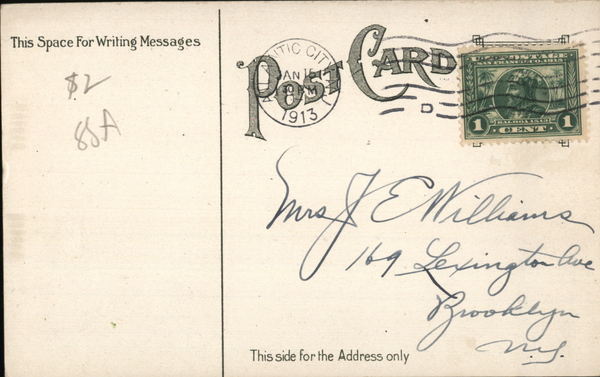 This Space For Writing Messages
$2
88A
POST CARD
ATLANTIC CITY N.J.
JAN 15
30 PM
1913
D
SAN FRANCISCO, 1915
BALBOA 1513
1 CENT 1
Mrs J E Williams
169 Lexington Ave
Brooklyn
N.Y.
This side for the Address only